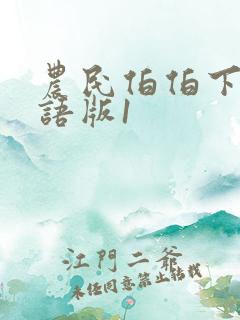 農民伯伯下
語版1
江門二爺
未任同意禁止转载